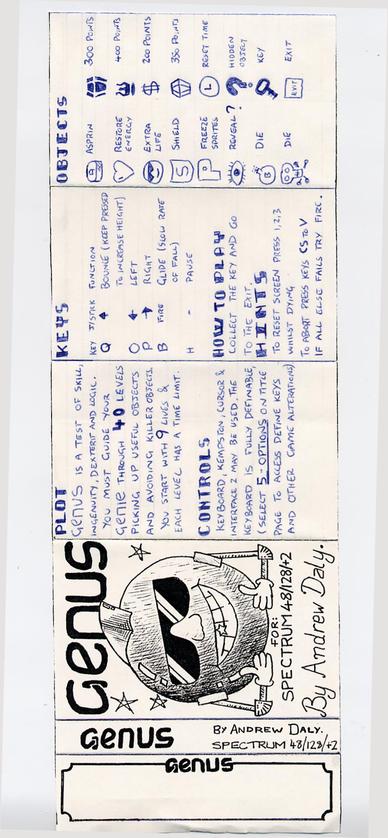 Genus
Genus
BY ANDREW DALY.
SPECTRUM 48/128/+2
Genus
FOR:
SPECTRUM 48/128/+2
By Andrew Daly.
PLOT
Genus IS A TEST OF SKILL,
INGENUITY, DEXTERIT AND LOGIC.
YOU MUST GUIDE YOUR
Genie THROUGH 40 LEVELS
PICKING UP USEFUL OBJECTS
AND AVOIDING KILLER OBJECTS.
YOU START WITH 9 LIVES &
EACH LEVEL HAS A TIME LIMIT.
CONTROLS
KEYBOARD, KEMPSTON, CURSOR &
INTERFACE 2 MAY BE USED. THE
KEYBOARD IS FULLY DEFINABLE,
(SELECT 5-OPTIONS ON TITLE
PAGE TO ACCESS DEFINE KEYS
AND OTHER GAME ALTERATIONS)
KEYS
KEY J/STICK FUNCTION
Q ↑ BOUNCE (KEEP PRESSED
TO INCREASE HEIGHT)
O ← LEFT
P → RIGHT
B FIRE GLIDE (SLOW RATE
OF FALL)
H - PAUSE
HOW TO PLAY
COLLECT THE KEY AND GO
TO THE EXIT.
HINTS
TO RESET SCREEN PRESS 1,2,3
WHILST DYING
TO ABORT PRESS KEYS CS TO V
IF ALL ELSE FAILS TRY FIRE.
OBJECTS
ASPRIN 300 POINTS
RESTORE
ENERGY 400 POINTS
EXTRA
LIFE $ 200 POINTS
S SHIELD 350 POINTS
P FREEZE
SPRITES L RESET TIME
REVEAL? ? HIDDEN
OBJECT
DIE KEY
DIE EXIT EXIT